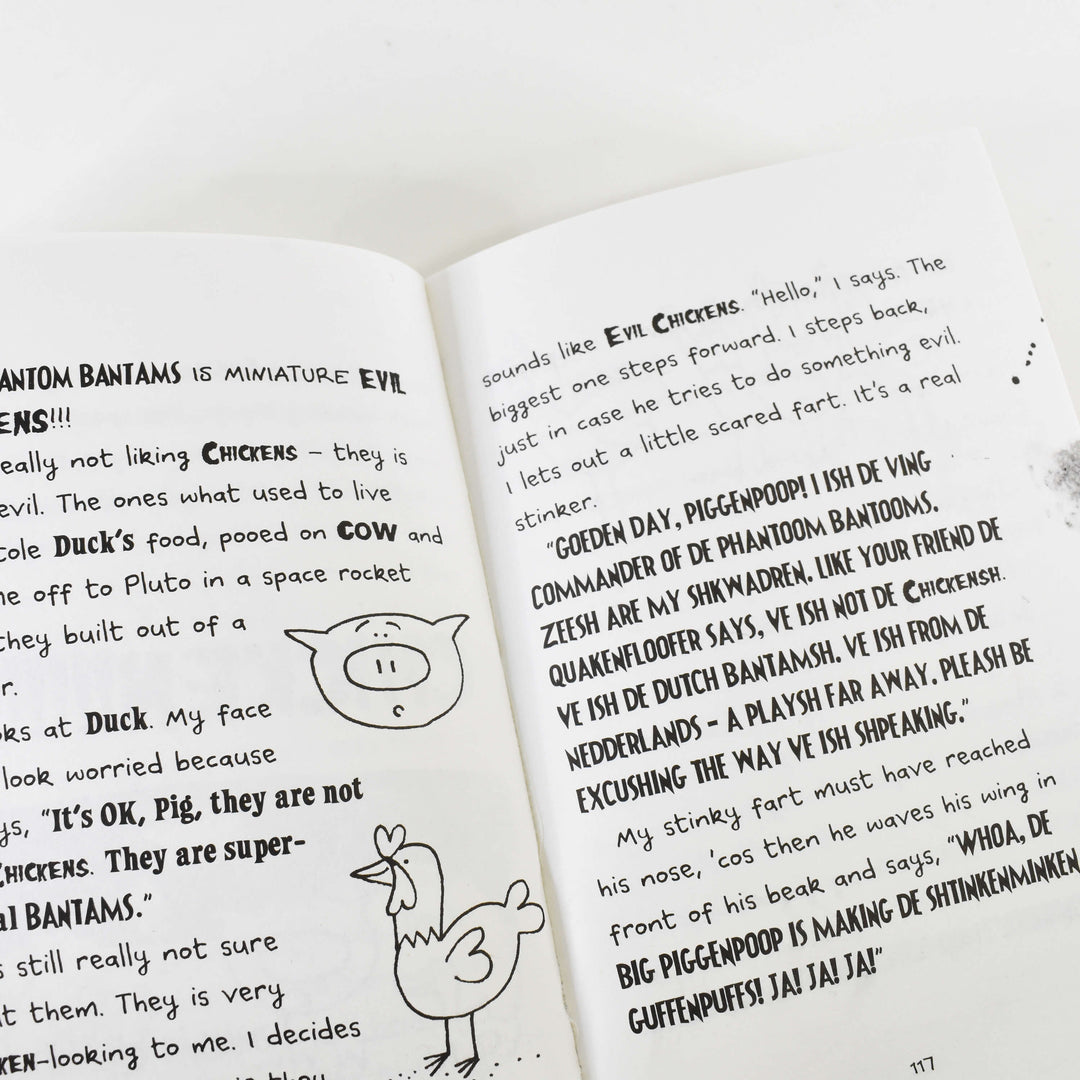 ANTOM BANTAMS IS MINIATURE EVIL
ENS!!!
eally not liking CHICKENS – they is
evil. The ones what used to live
tole Duck's food, pooed on COW and
me off to Pluto in a space rocket
they built out of a
r.
ks at Duck. My face
look worried because
ys, "It's OK, Pig, they are not
CHICKENS. They are super-
al BANTAMS."
s still really not sure
t them. They is very
KEN-looking to me. I decides
they
sounds like EVIL CHICKENS. "Hello," I says. The
biggest one steps forward. I steps back,
just in case he tries to do something evil.
I lets out a little scared fart. It's a real
stinker.
"GOEDEN DAY, PIGGENPOOP! I ISH DE VING
COMMANDER OF DE PHANTOOM BANTOOMS.
ZEESH ARE MY SHKWADREN. LIKE YOUR FRIEND DE
QUAKENFLOOFER SAYS, VE ISH NOT DE CHICKENSH.
VE ISH DE DUTCH BANTAMSH. VE ISH FROM DE
NEDDERLANDS – A PLAYSH FAR AWAY. PLEASH BE
EXCUSHING THE WAY VE ISH SHPEAKING."
My stinky fart must have reached
his nose, 'cos then he waves his wing in
front of his beak and says, "WHOA, DE
BIG PIGGENPOOP IS MAKING DE SHTINKENMINKEN
GUFFENPUFFS! JA! JA! JA!"
117